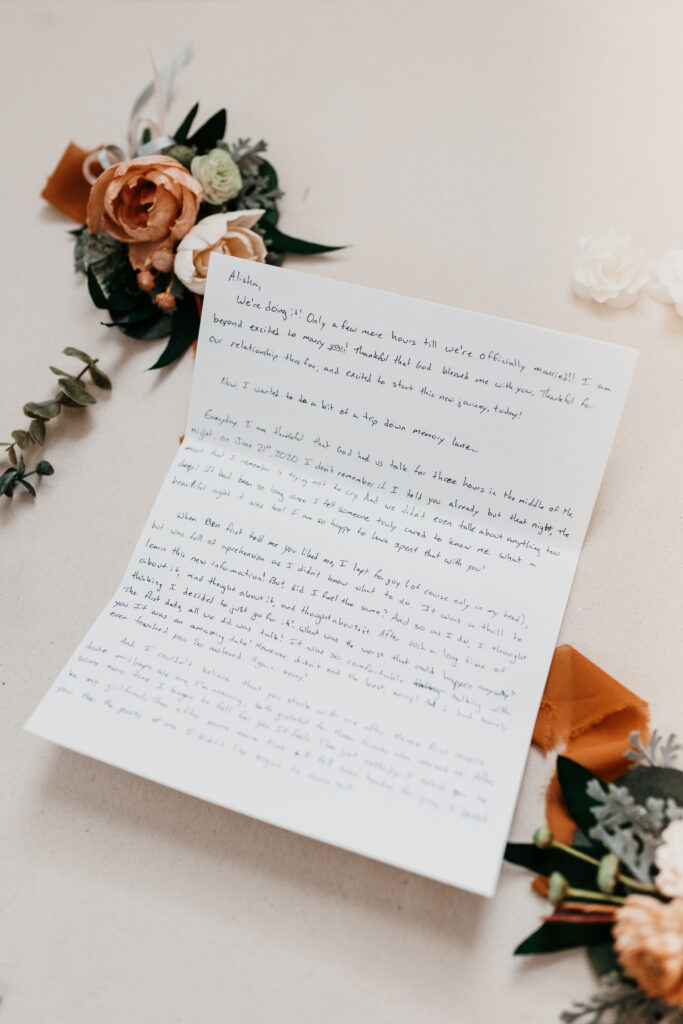 Alisha,
We're doing it! Only a few more hours till we're officially married!! I am
beyond excited to marry you! Thankful that God blessed me with you. Thankful for
our relationship thus far, and excited to start this new journey, today!
Now, I wanted to do a bit of a trip down memory lane...
Everyday I am thankful that God had us talk for three hours in the middle of the
night, on June 21st, 2020 I don't remember if I told you already but that night, the
most that I remember is trying not to cry And we didn't even talk about anything too
deep! It had been so long since I felt someone truly cared to know me. What a
beautiful night it was too! I am so happy to have spent that with you!
When Ben first told me you liked me, I lept for joy (of course only in my head),
but was full of aprehension as I didn't know what to do. It was a thrill to
learn this new information! But, did I feel the same? And so as I do, I thought
about it, and thought about it, and thought about it After such a long time of
thinking I decided to just go for it! What was the worst that could happen anyways?
The first date, all we did was talk! It was so comfortable talking with
you It was an amazing date! However didn't end the best, sorry! And I had barely
even touched you So awkward. Again, sorry!
And I couldn't believe that you stuck with me after those first couple
date mishaps We are, I'm assuming, both grateful for those friends who
some more time I began to fall for you It feels like just yesterday I asked you to
be my girlfriend. Then after some more time I fell even harder for you,
you. Then the parts of me I didn't like began to come out